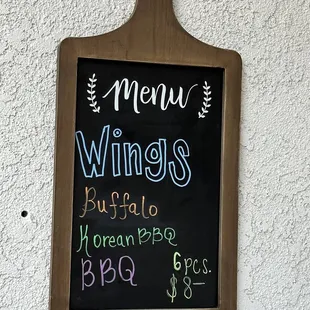 Menu
Wings
Buffalo
Korean BBQ
BBQ
6pcs.
$8—